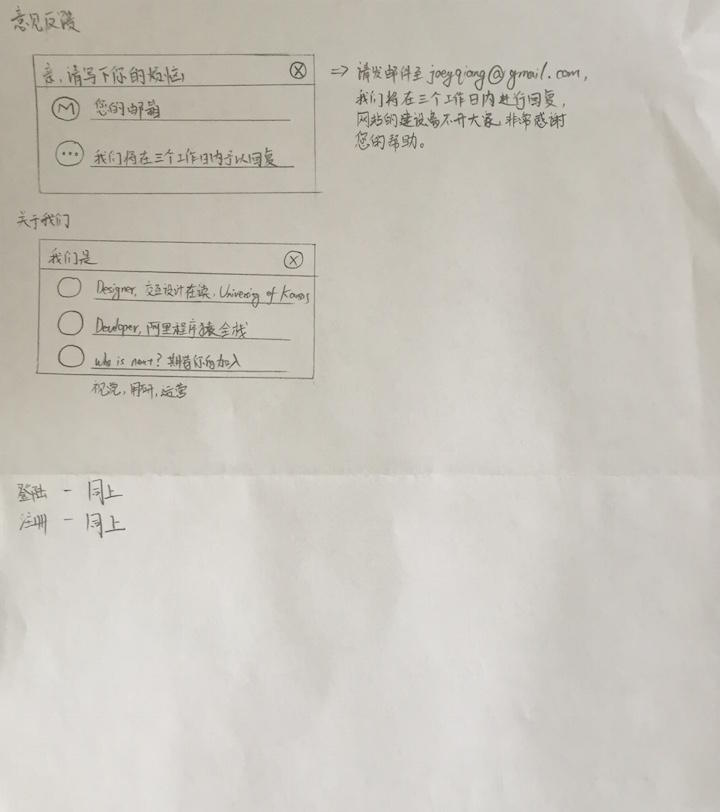 意见反馈
亲,请写下你的烦恼
X
M 您的邮箱
... 我们将在三个工作日内予以回复
=> 请发邮件至 joeyqiang@gmail.com,
我们将在三个工作日内进行回复,
网站的建设离不开大家,非常感谢
您的帮助。
关于我们
我们是
X
Designer, 交互设计在读, University of Kansas
Developer, 阿里程序猿全栈
who is next? 期待你的加入
视觉,用研,运营
登陆 - 同上
注册 - 同上